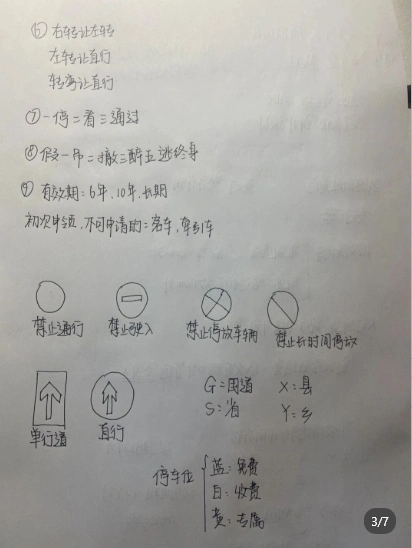 ⑥ 右转让左转
左转让直行
转弯让直行
⑦一停二看三通过
⑧假一吊二撤三醉五逃终身
⑨ 有效期：6年、10年、长期
初次申领，不可申请的：客车，牵引车
禁止通行 禁止驶入 禁止停放车辆 禁止长时间停放
单行道 直行
G：国道 X：县
S：省 Y：乡
停车位
蓝：免费
白：收费
黄：专属
3/7